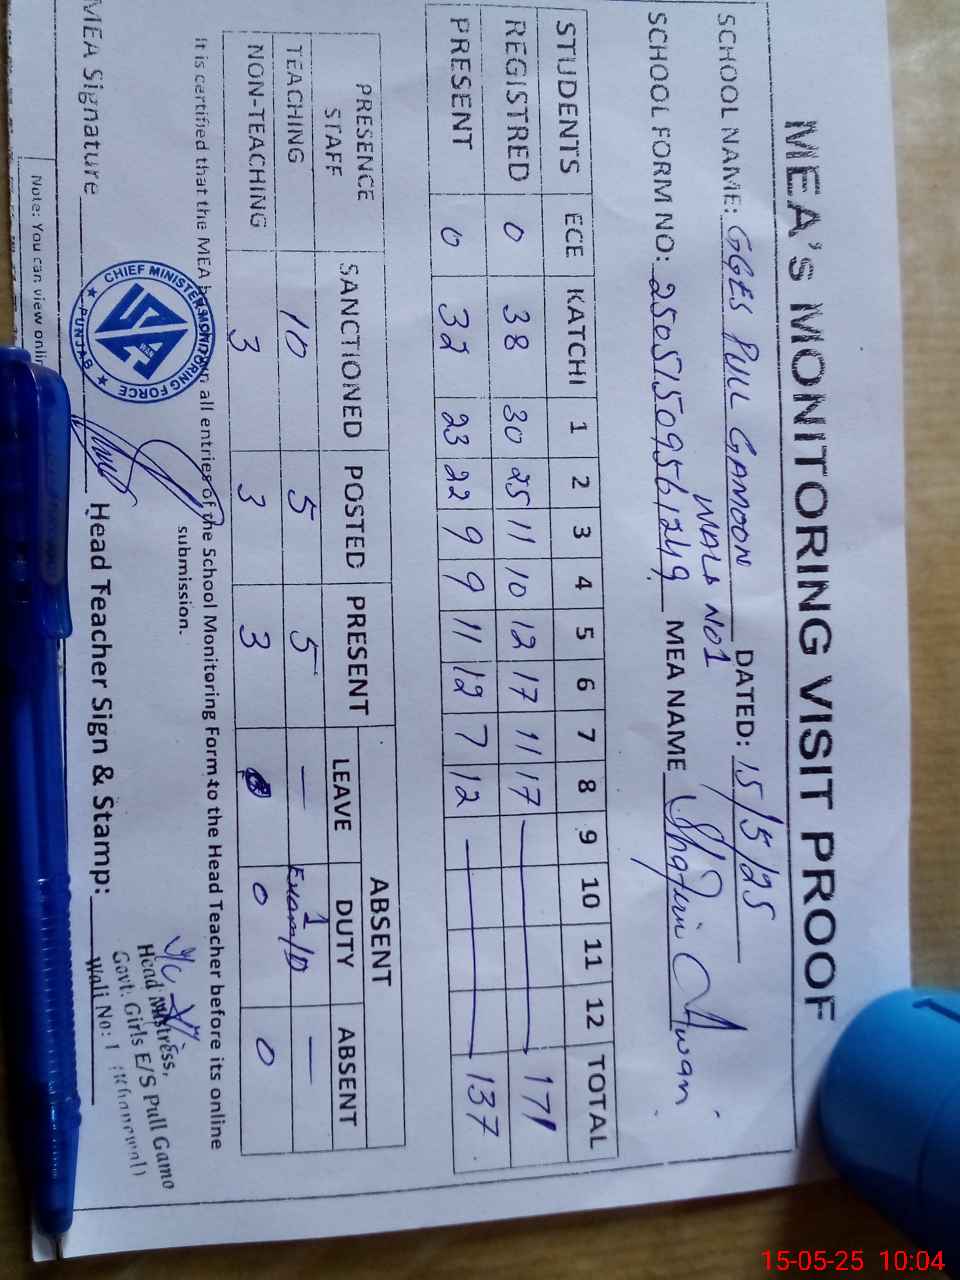 MEA's MONITORING VISIT PROOF
SCHOOL NAME: GGES PULL GAMOON DATED: 15/5/25
WALA NO1
SCHOOL FORM NO: 25051509561249 MEA NAME Awan
STUDENTS ECE KATCHI 1 2 3 4 5 6 7 8 9 10 11 12 TOTAL
REGISTRED 0 38 30 25 11 10 12 17 11 17 171
PRESENT 0 32 23 22 9 9 11 12 7 12 137
PRESENCE STAFF SANCTIONED POSTED PRESENT ABSENT
LEAVE DUTY ABSENT
TEACHING 10 5 5 — 1 Exam/D —
NON-TEACHING 3 3 3 0 0
It is certified that the MEA all entries of the School Monitoring Form to the Head Teacher before its online
submission.
CHIEF MINISTER MONITORING FORCE
PUNJAB
MEA Signature Head Teacher Sign & Stamp:
Head Mistress,
Govt. Girls E/S Pull Gamo
Wali No: 1 (Khanewal)
Note: You can view onlin
15-05-25 10:04